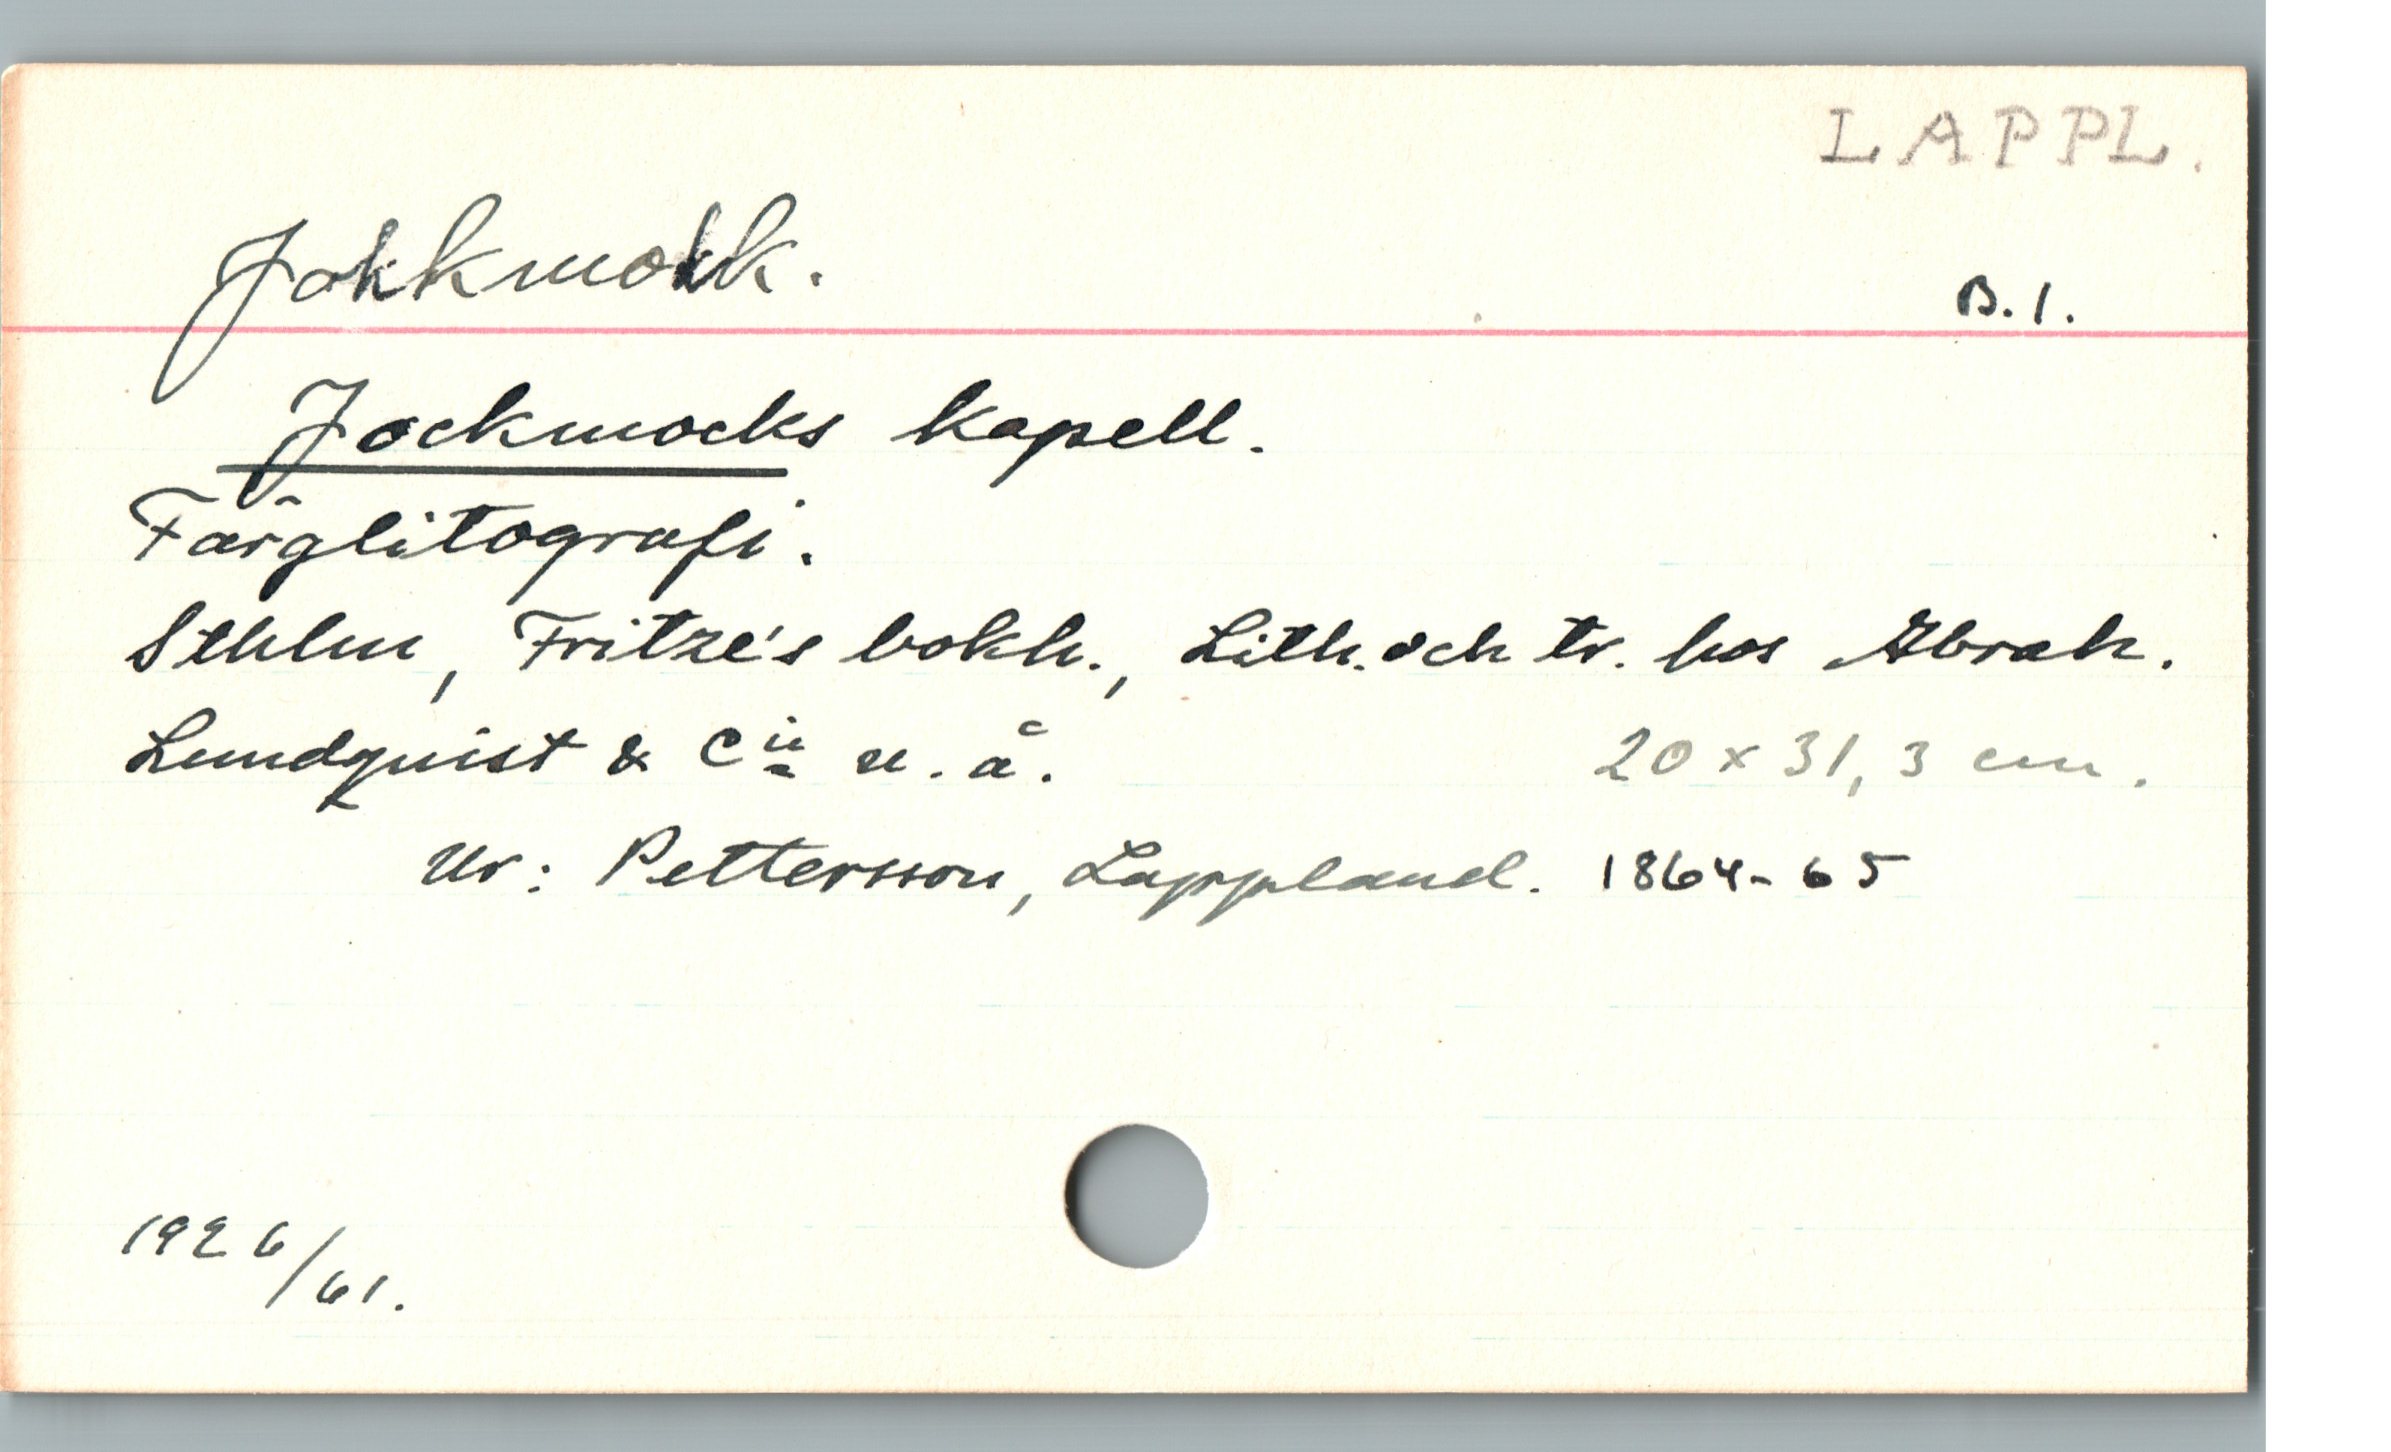 LAPPL.
Jokkmokk.
B.1.
Jockmocks kapell.
Färglitografi.
Sthlm, Fritze's bokh., Lith. och tr. hos Abrah.
Lundquist & Cie u. å. 20 x 31,3 cm.
Ur: Pettersson, Lappland. 1864-65
1926/61.